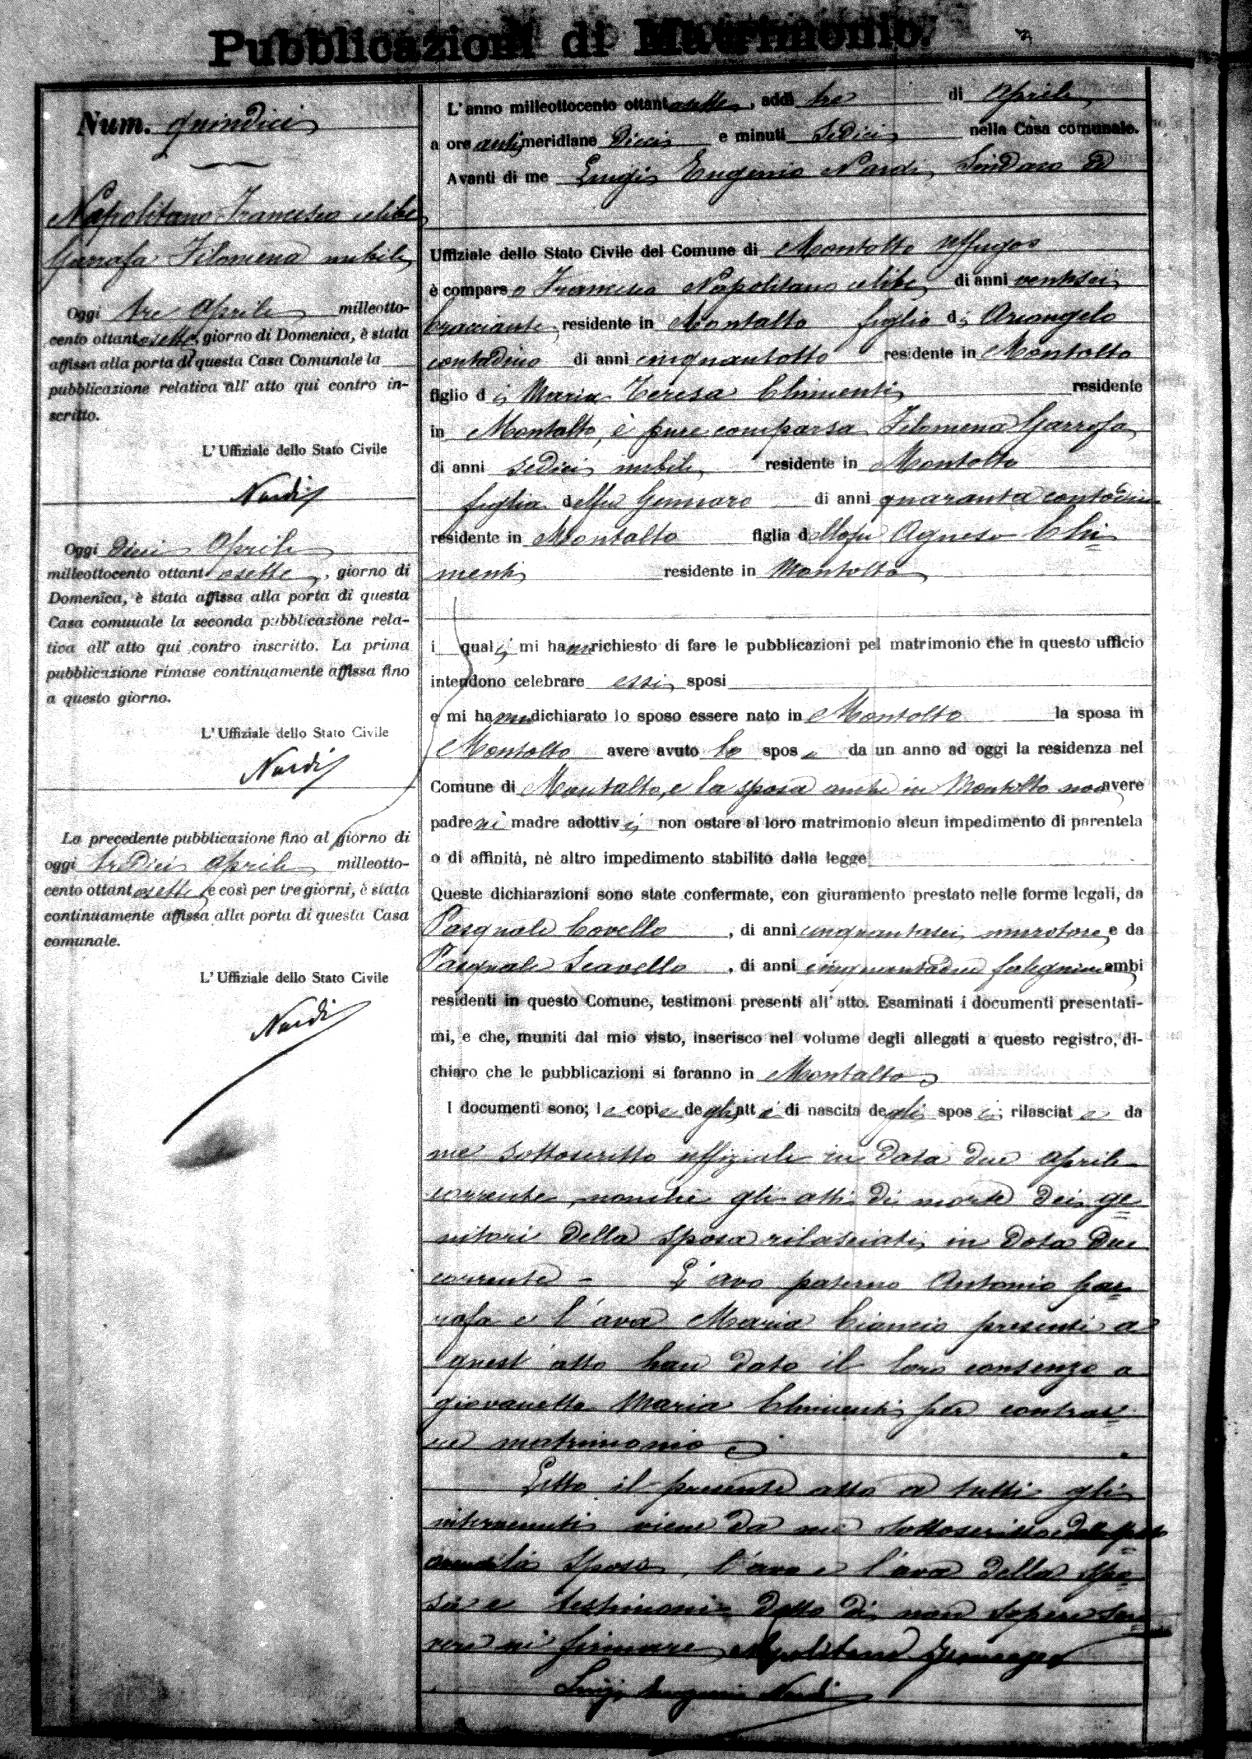 Pubblicazioni di Matrimonio.
Num. quindici
Napolitano Francesco celibe
Garrafa Filomena nubile
Oggi tre Aprile milleotto-
cento ottantasette, giorno di Domenica, è stata
affissa alla porta di questa Casa Comunale la
pubblicazione relativa all' atto qui contro in-
scritto.
L' Uffiziale dello Stato Civile
Nardi
Oggi dieci Aprile
milleottocento ottantasette, giorno di
Domenica, è stata affissa alla porta di questa
Casa comunale la seconda pubblicazione rela-
tiva all' atto qui contro inscritto. La prima
pubblicazione rimase continuamente affissa fino
a questo giorno.
L' Uffiziale dello Stato Civile
Nardi
La precedente pubblicazione fino al giorno di
oggi tredici Aprile milleotto-
cento ottantasette e così per tre giorni, è stata
continuamente affissa alla porta di questa Casa
comunale.
L' Uffiziale dello Stato Civile
Nardi
L' anno milleottocento ottantasette, addì tre di Aprile
a ore antimeridiane dieci e minuti sedici nella Casa comunale.
Avanti di me Luigi Eugenio Nardi, Sindaco ed
Uffiziale dello Stato Civile del Comune di Montalto Uffugo
è comparso Francesco Napolitano celibe, di anni ventisei
bracciante, residente in Montalto figlio di Arcangelo
contadino di anni cinquantotto residente in Montalto
figlio di Maria Teresa Chimenti residente
in Montalto, è pure comparsa Filomena Garrafa
di anni sedici nubile residente in Montalto
figlia del fu Gennaro di anni quaranta contadino
residente in Montalto figlia della fu Agnese Chi=
menti residente in Montalto
i quali mi hanno richiesto di fare le pubblicazioni pel matrimonio che in questo ufficio
intendono celebrare essi sposi
e mi hanno dichiarato lo sposo essere nato in Montalto la sposa in
Montalto avere avuto lo sposo da un anno ad oggi la residenza nel
Comune di Montalto, e la sposa anche in Montalto non avere
padre nè madre adottivi non ostare al loro matrimonio alcun impedimento di parentela
o di affinità, nè altro impedimento stabilito dalla legge
Queste dichiarazioni sono state confermate, con giuramento prestato nelle forme legali, da
Pasquale Covello, di anni cinquantasei muratore, e da
Pasquale Scavello, di anni cinquantadue falegname ambi
residenti in questo Comune, testimoni presenti all' atto. Esaminati i documenti presentati-
mi, e che, muniti dal mio visto, inserisco nel volume degli allegati a questo registro, di-
chiaro che le pubblicazioni si faranno in Montalto
I documenti sono; le copie degli atti di nascita degli sposi; rilasciate da
me sottoscritto uffiziale in data due Aprile
corrente, nonchè gli atti di morte dei ge=
nitori della sposa rilasciati in data due
corrente - L'avo paterno Antonio Gar=
rafa e l'ava Maria Ciancio presenti a
quest'atto han dato il loro consenso a
giovanetta Maria Chimenti per contrar=
re matrimonio
Letto il presente atto a tutti gli
intervenuti viene da me sottoscritto e dallo
sposo, l'avo e l'ava della spo=
sa e testimoni detto di non sapere scri
vere nè firmare Napolitano Francesco
Luigi Eugenio Nardi